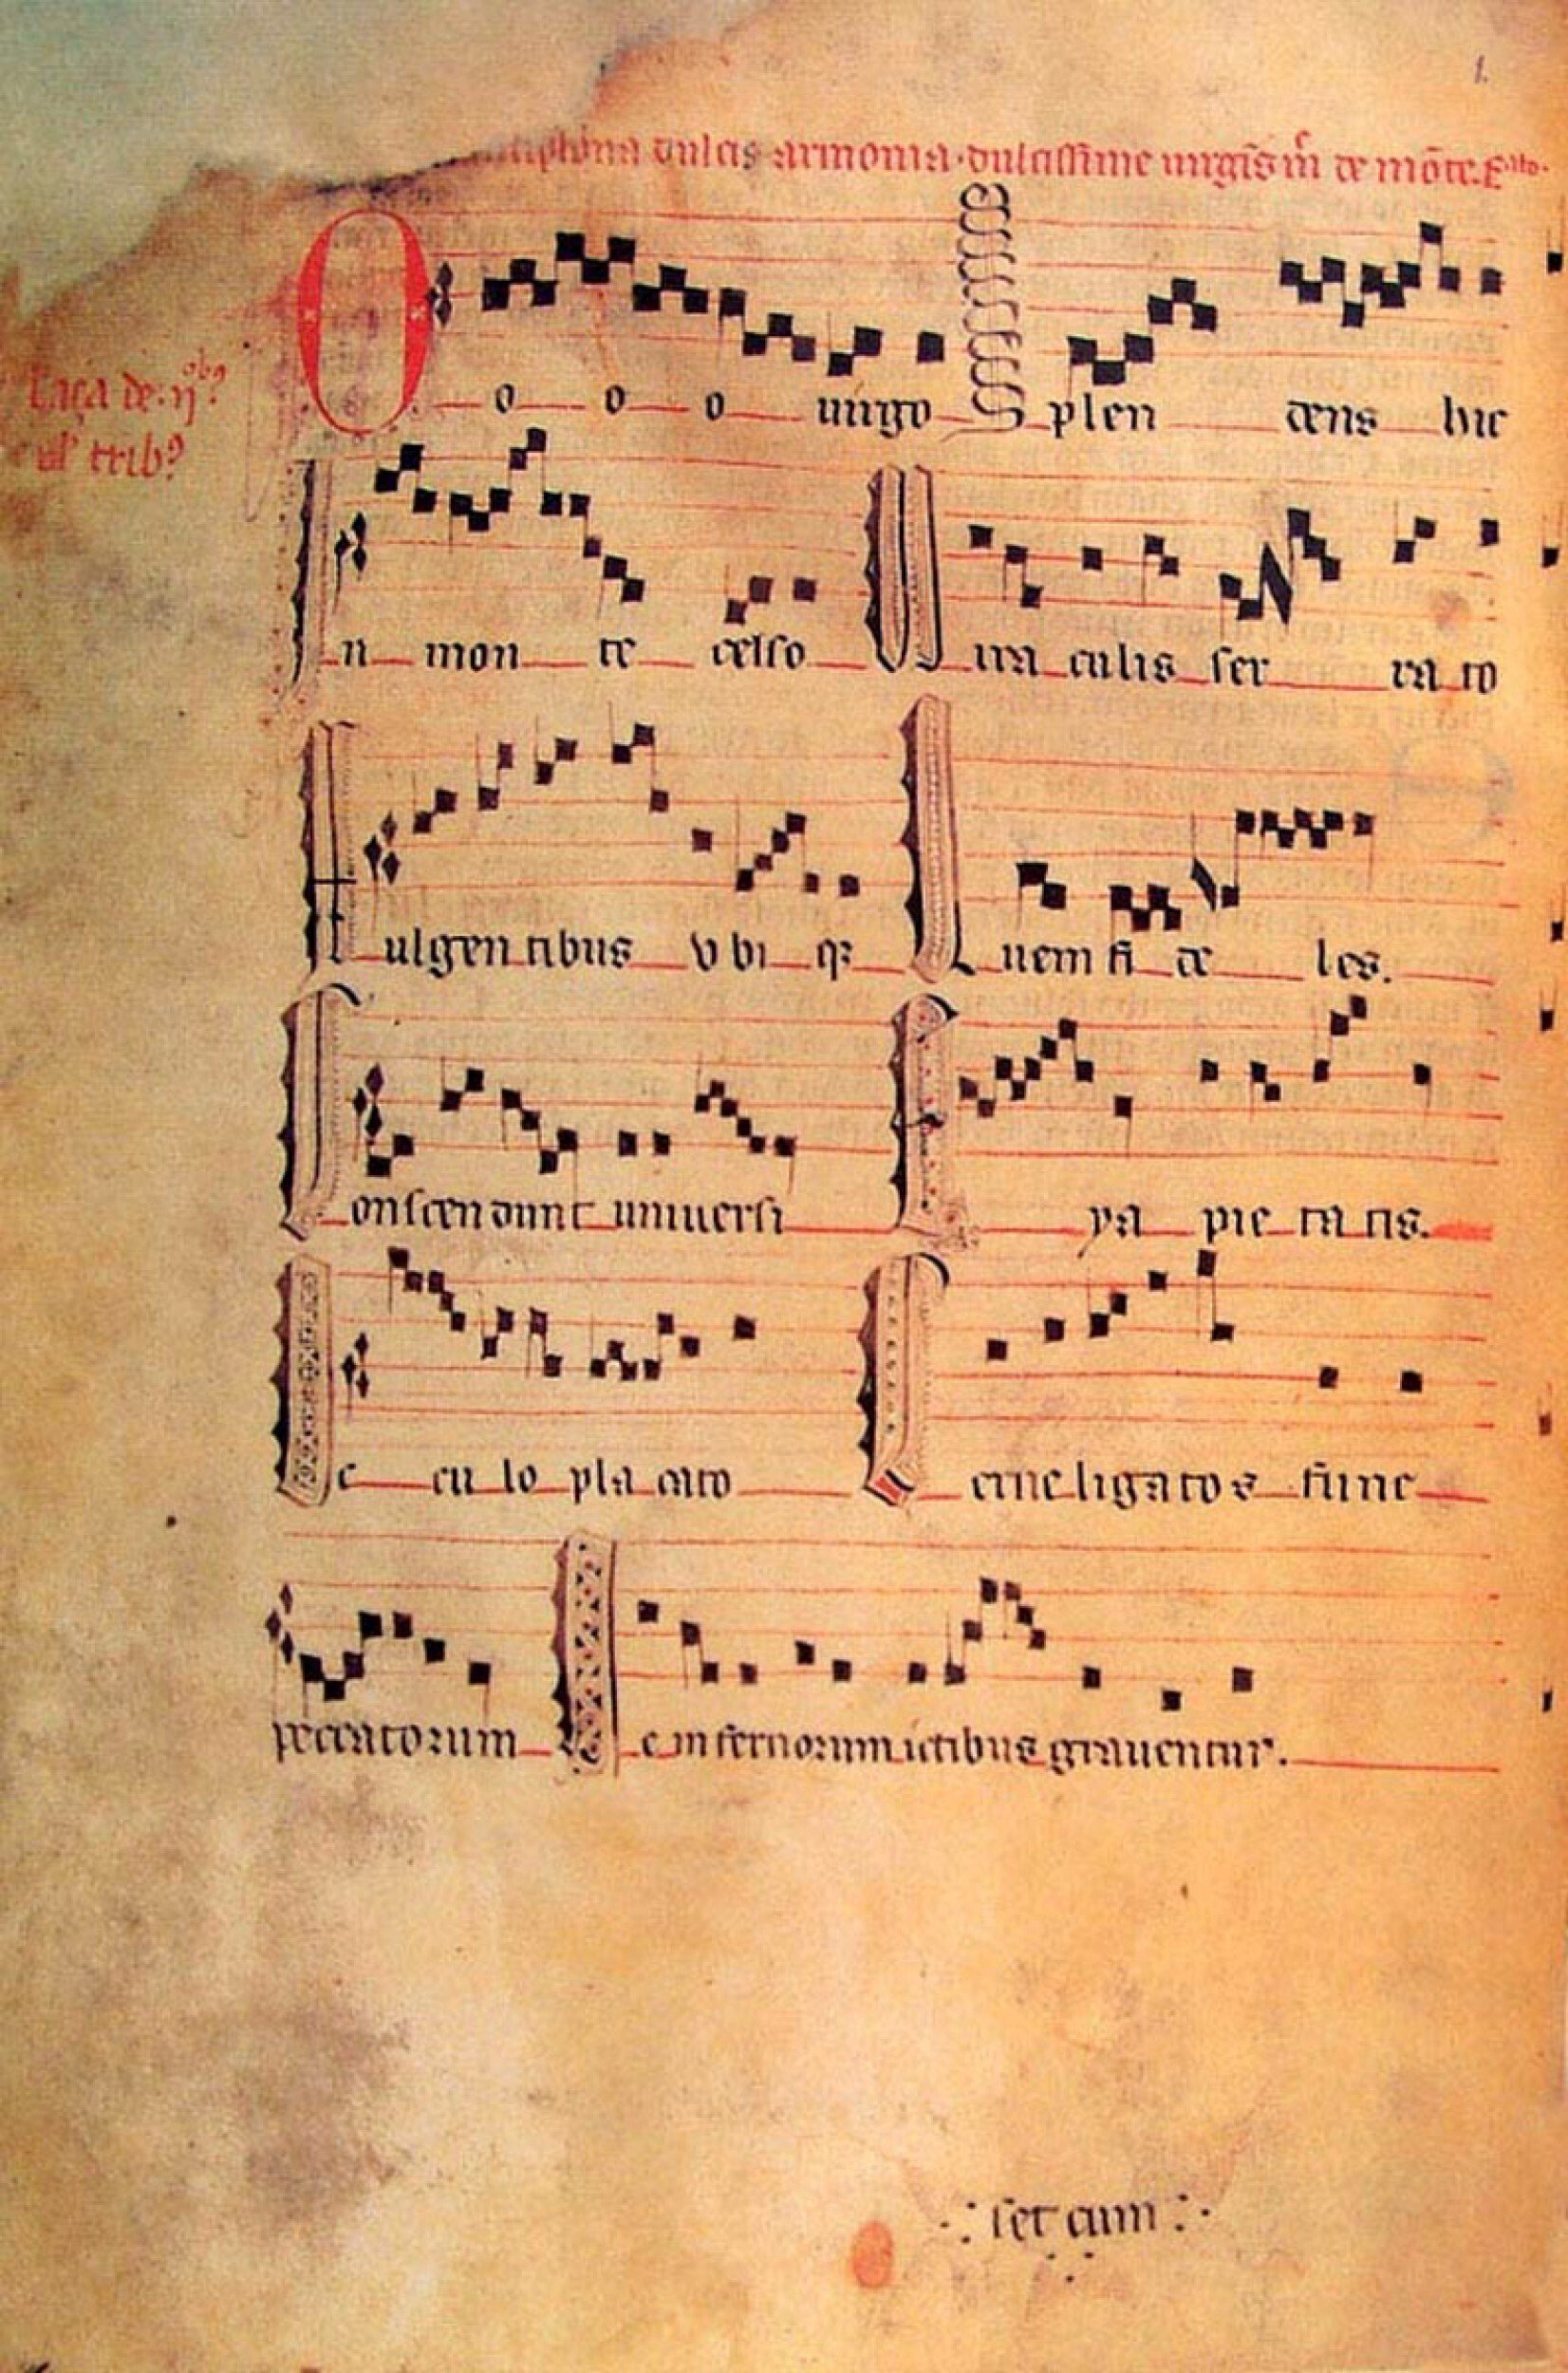 1.
antiphona dulcis armonia. dulcissime uirgis
Caça de .ij.
uł trib9
O o o o uirgo Splen dens hic
In mon te celso Mira culis ser ra to
Fulgen tibus vbi q3 Quem fi de les.
Conscendunt uniuersi Eya pie ta tis.
Oc cu lo pla cato Cerne ligatos fune
peccatorum Ne infernorum ictibus grauentur.
set cum